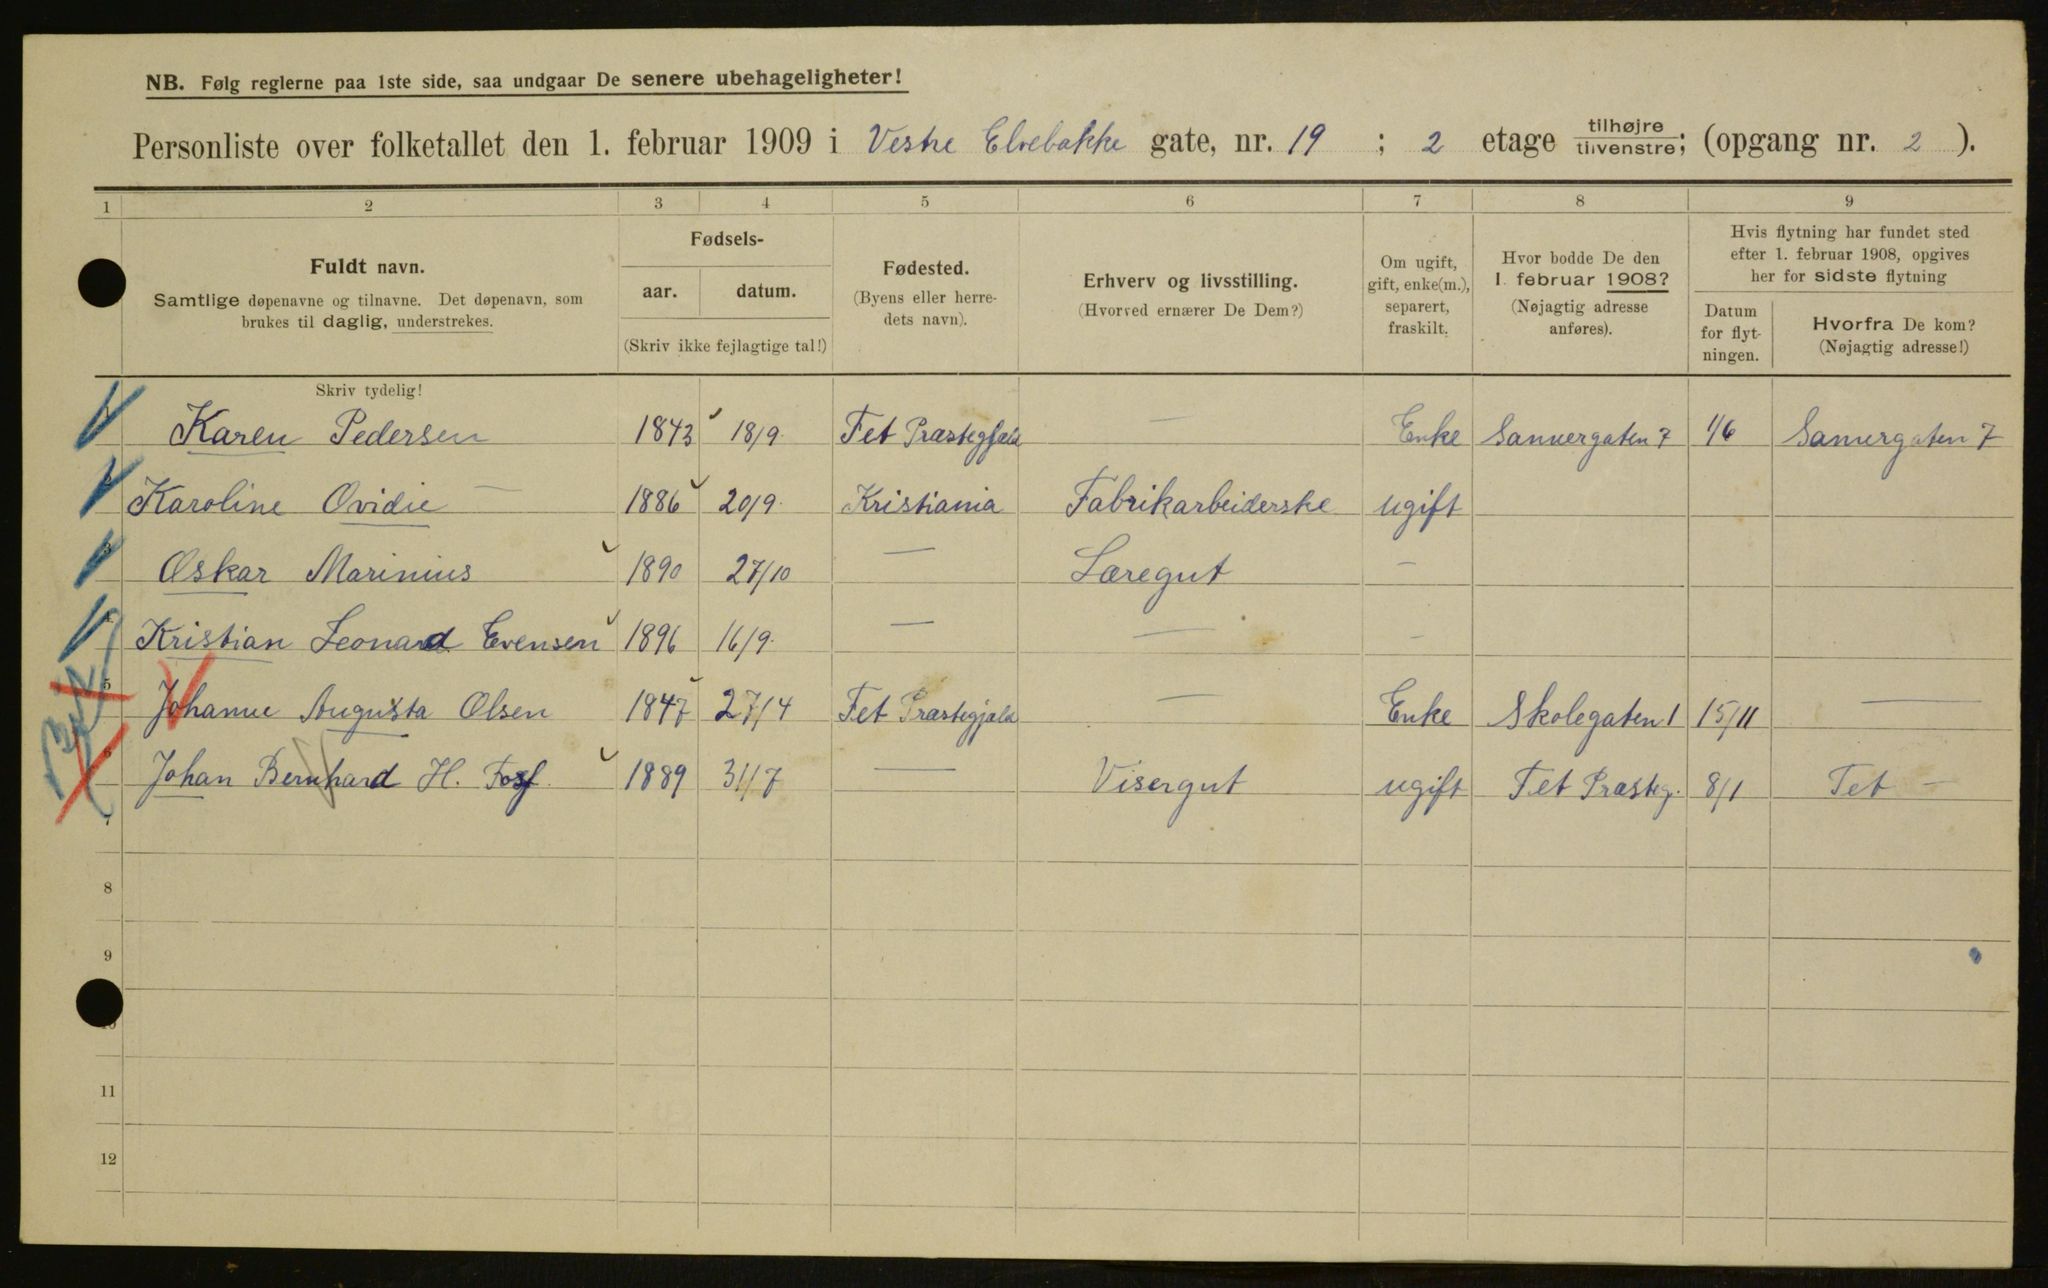 NB. Følg reglerne paa 1ste side, saa undgaar De senere ubehageligheter!
Personliste over folketallet den 1. februar 1909 i Vestre Elvebakke gate, nr. 19 ; 2 etage tilhøjre tilvenstre; (opgang nr. 2 ).
1 2 3 4 5 6 7 8 9
Fuldt navn.
Samtlige døpenavne og tilnavne. Det døpenavn, som
brukes til daglig, understrekes.
Fødsels-
aar. datum.
(Skriv ikke fejlagtige tal!)
Fødested.
(Byens eller herre-
dets navn).
Erhverv og livsstilling.
(Hvorved ernærer De Dem?)
Om ugift,
gift, enke(m.),
separert,
fraskilt.
Hvor bodde De den
1. februar 1908?
(Nøjagtig adresse
anføres).
Hvis flytning har fundet sted
efter 1. februar 1908, opgives
her for sidste flytning
Datum
for flyt-
ningen.
Hvorfra De kom?
(Nøjagtig adresse!)
Skriv tydelig!
Karen Pedersen 1843 18/9. Fet Præstegjæld — Enke Sannergaten 7 1/6 Sannergaten 7
2 Karoline Ovidie — 1886 20/9. Kristiania Fabrikarbeiderske ugift
3 Oskar Marinius 1890 27/10 — Læregut —
4 Kristian Leonard Evensen 1896 16/9. — — —
5 Johanne Augusta Olsen 1847 27/4 Fet Præstegjæld — Enke Skolegaten 1 15/11 —
6 Johan Bernhard H. Foss. 1889 31/7 — Visergut ugift Fet Præsteg. 8/1 Fet —
7
8
9
10
11
12